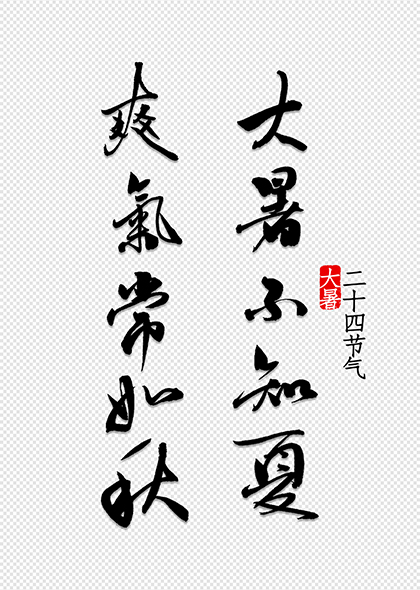 大暑不知夏
爽氣常如秋
二十四节气
大暑